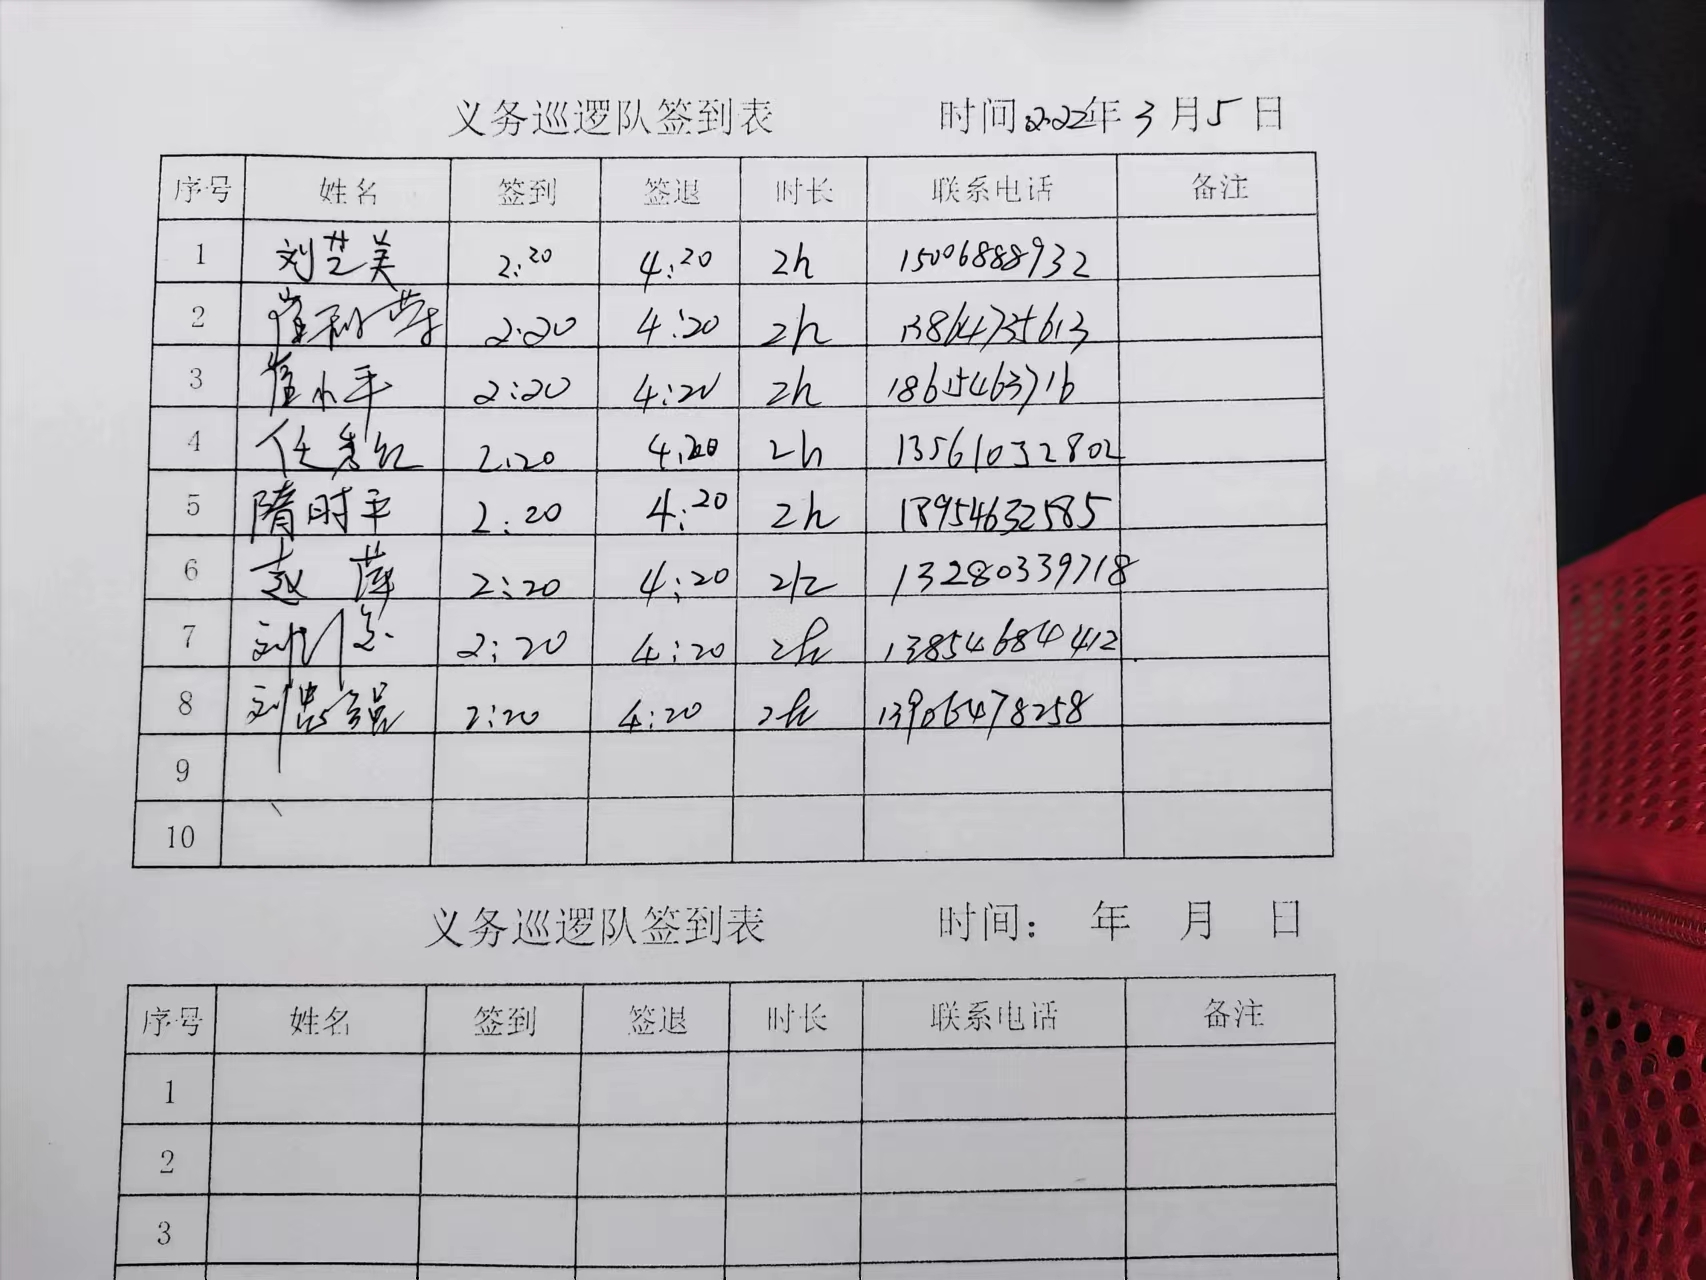 义务巡逻队签到表 时间:2022年3月5日
序号 姓名 签到 签退 时长 联系电话 备注
1 刘芝美 2:20 4:20 2h 15006888932
2 崔利萍 2:20 4:20 2h 13864735613
3 崔小平 2:20 4:20 2h 18615463716
4 任秀红 2:20 4:20 2h 13561032802
5 隋时平 2:20 4:20 2h 18954632585
6 赵萍 2:20 4:20 2h 13280339718
7 刘 2:20 4:20 2h 13854684412
8 刘忠强 2:20 4:20 2h 13906478258
9
10
义务巡逻队签到表 时间: 年 月 日
序号 姓名 签到 签退 时长 联系电话 备注
1
2
3